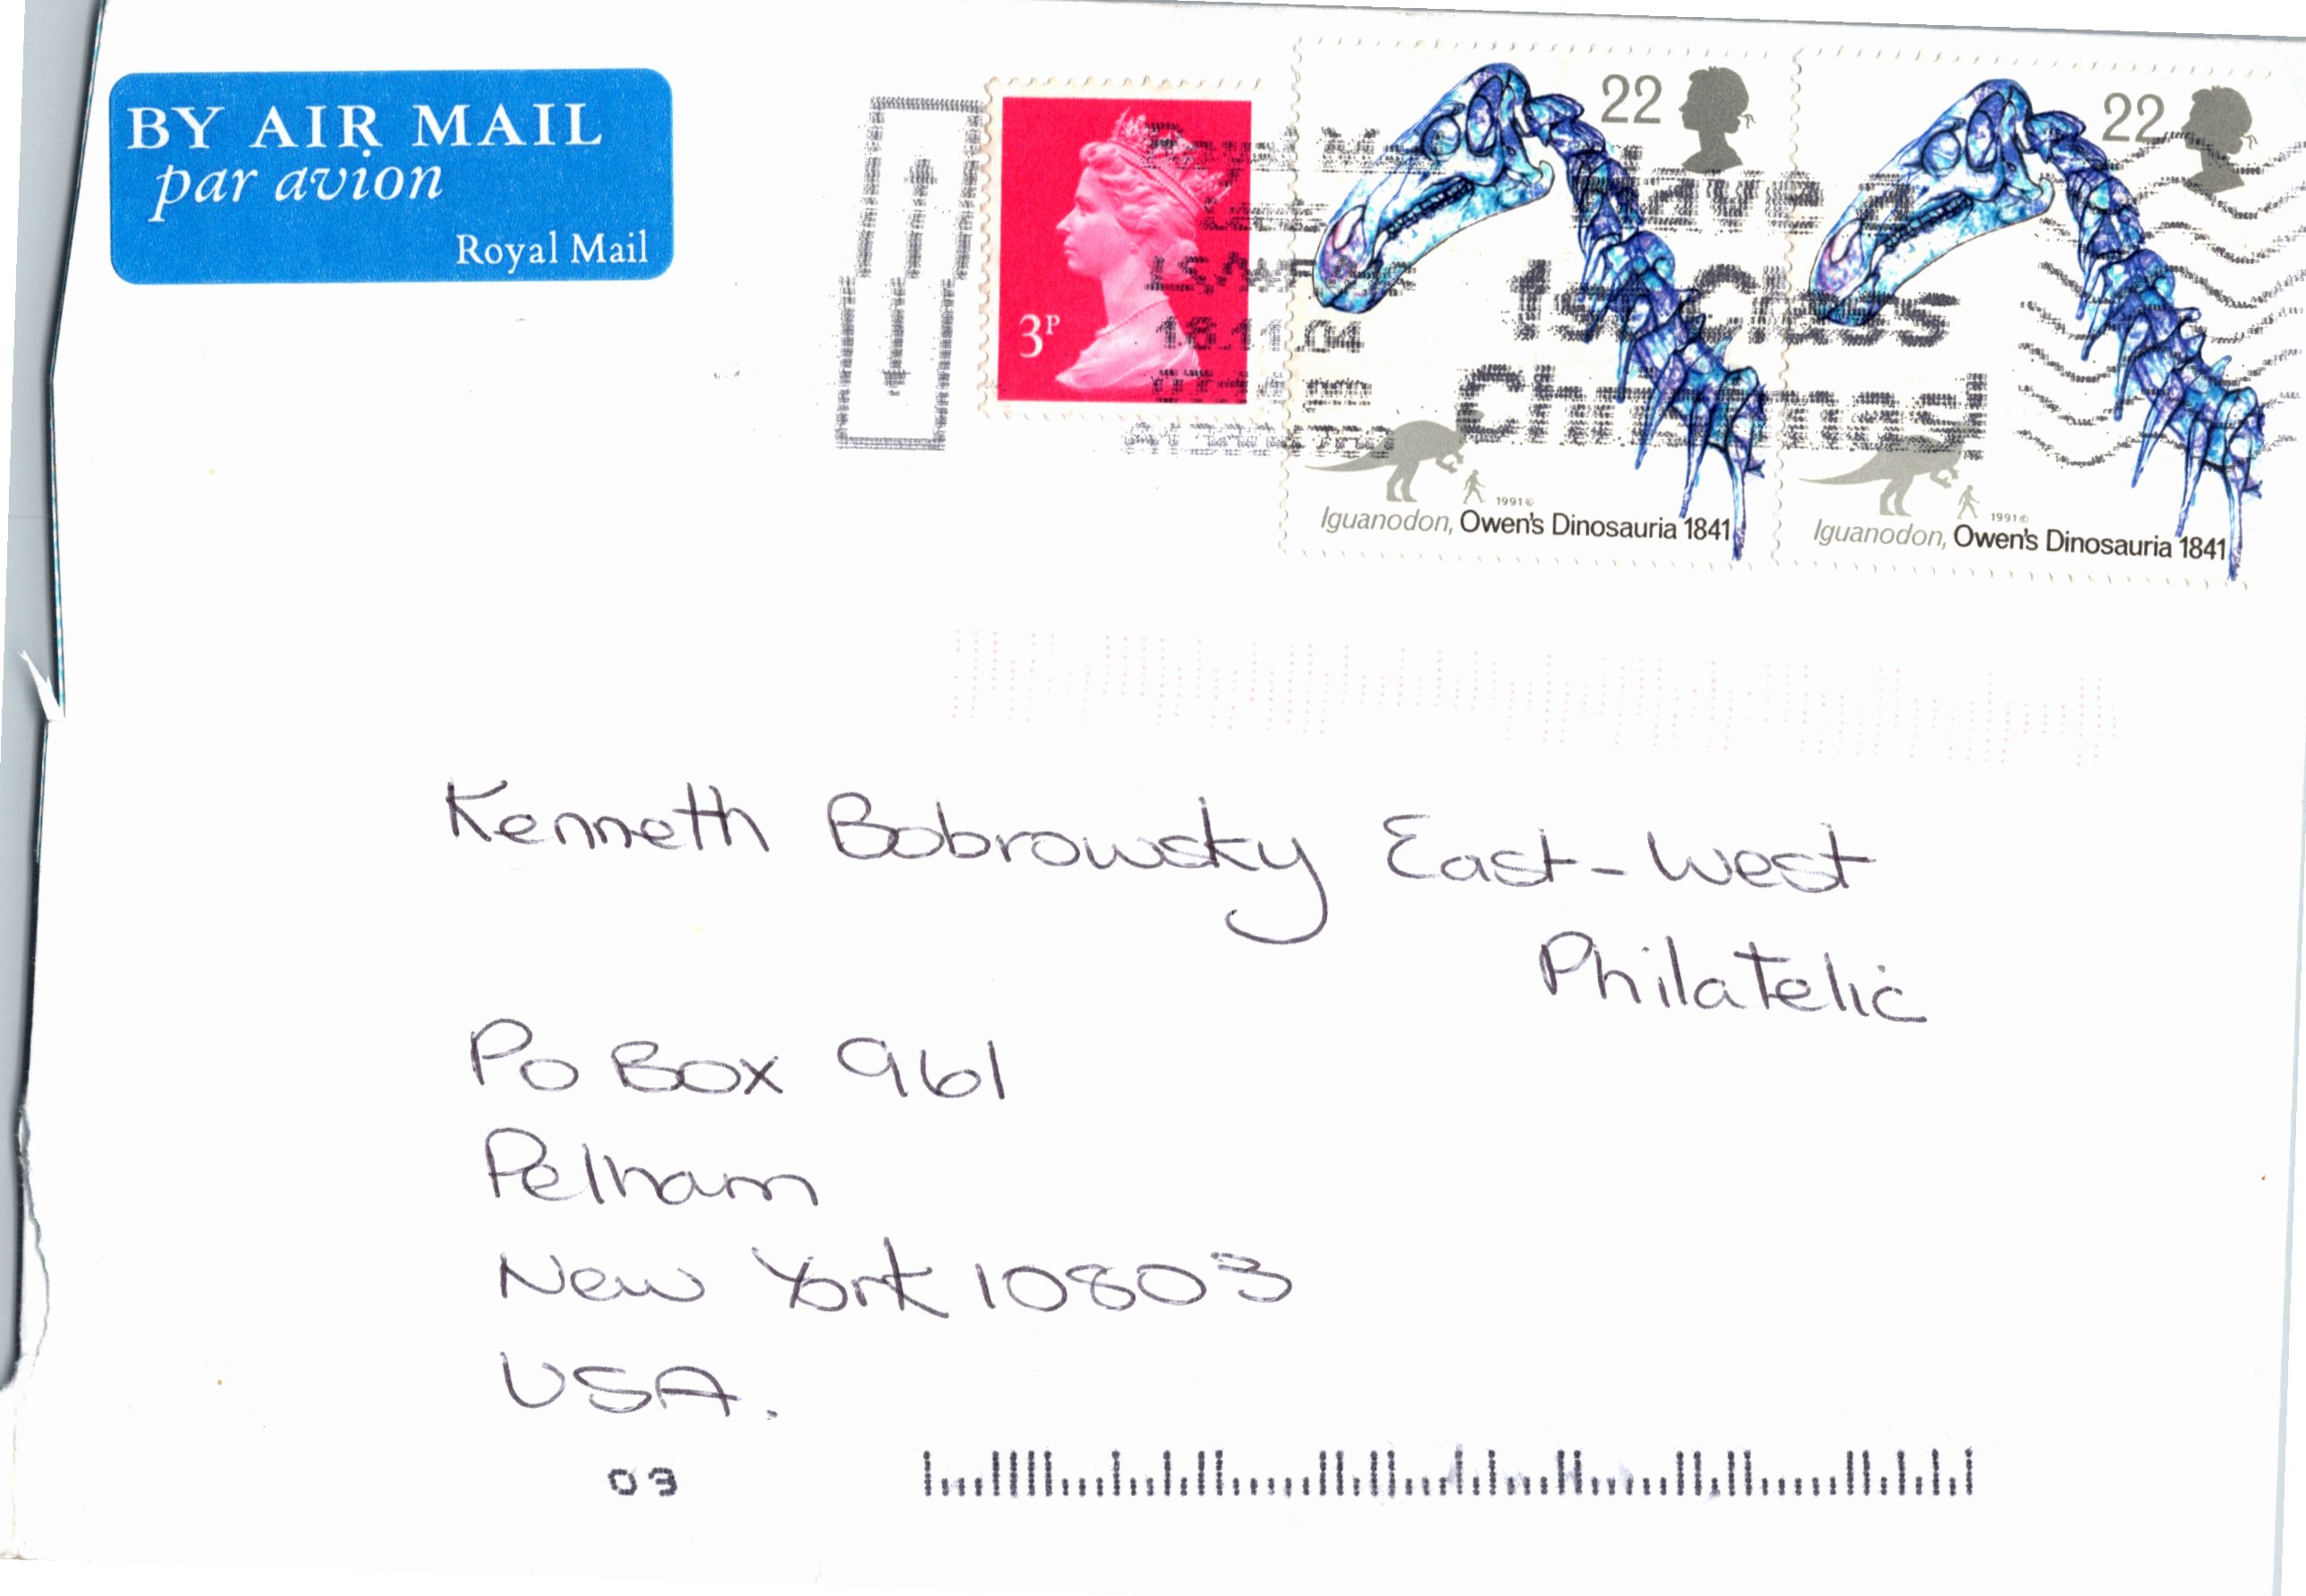 BY AIR MAIL
par avion
Royal Mail
3P
22
22
Have a
1st Class
Christmas!
1991©
Iguanodon, Owen's Dinosauria 1841
1991©
Iguanodon, Owen's Dinosauria 1841
Kenneth Bobrowsky East-West
Philatelic
Po Box 961
Pelham
New York 10803
USA.
03